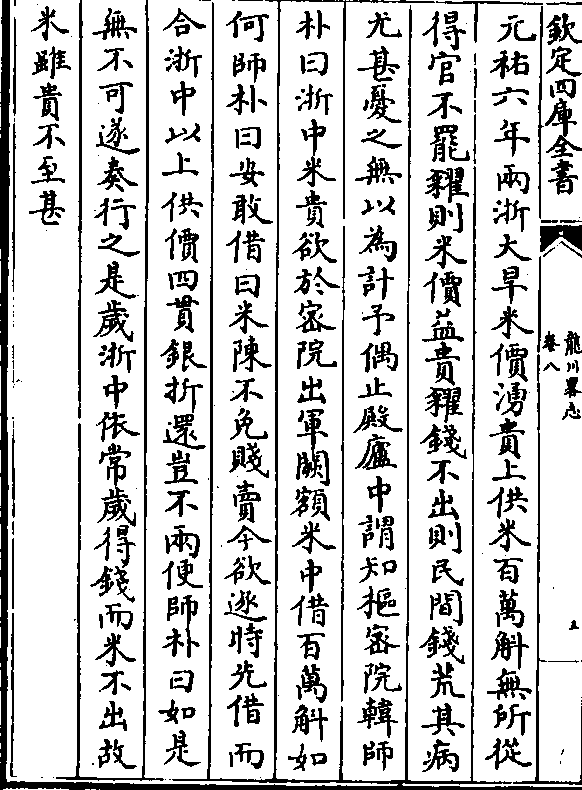 欽定四庫全書
龍川畧志
卷八
五
元祐六年兩浙大旱米價湧貴上供米百萬斛無所從
得官不罷糴則米價益貴糴錢不出則民間錢荒其病
尤甚憂之無以為計予偶止殿廬中謂知樞密院韓師
朴曰浙中米貴欲於密院出軍闕額米中借百萬斛如
何師朴曰安敢借曰米陳不免賤賣今欲逐時先借而
合浙中以上供價四貫銀折還豈不兩便師朴曰如是
無不可遂奏行之是歲浙中依常歲得錢而米不出故
米雖貴不至甚